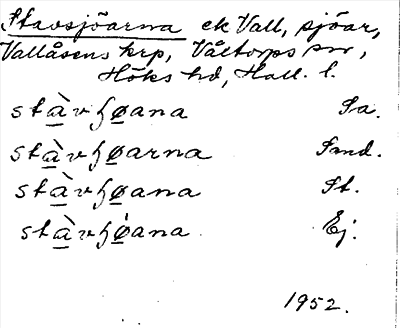 Stavsjöarna ek Vall, sjöar,
Vallåsens krp, Våxtorps sn,
Höks hd, Hall. l.
stàvɧøana Sa.
stàvɧøarna Sand.
stàvɧøana St.
stàvɧǿana Ej.
1952.